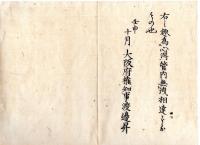 右之趣為心得管内無洩相達するもの也
壬申
十月 大阪府権知事渡邊昇